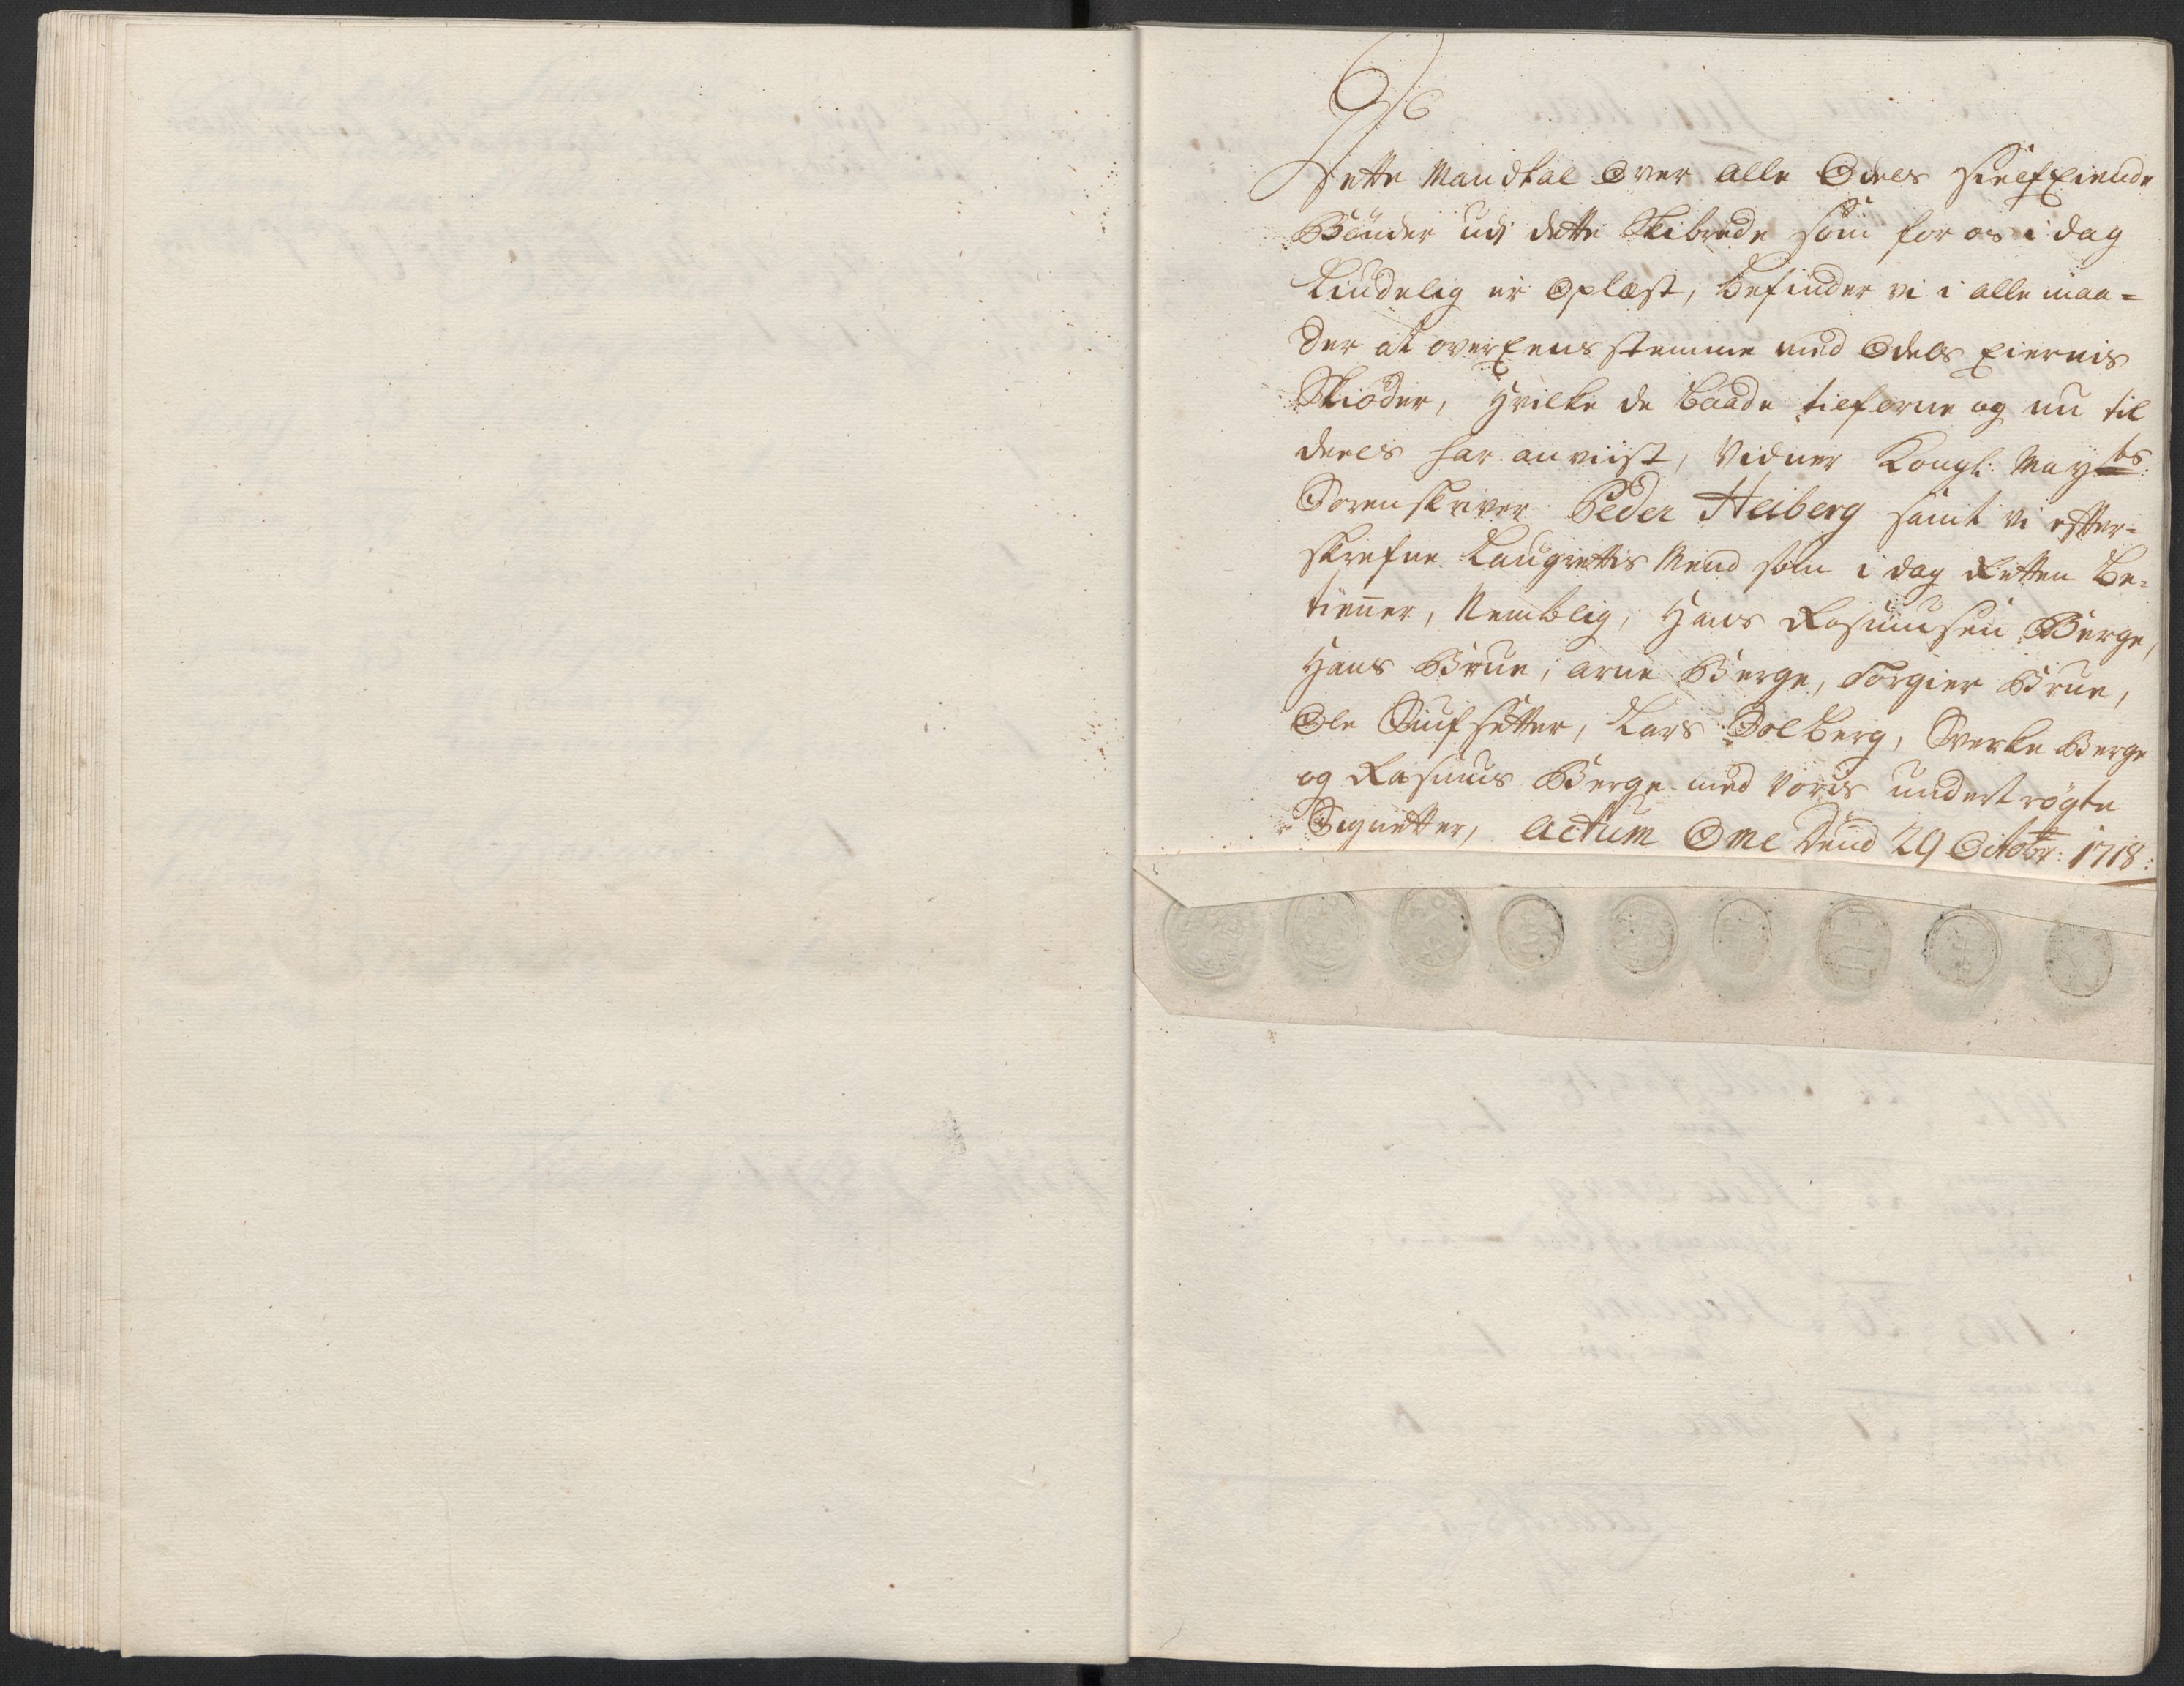 Dette Mandtal Over alle Odels sielf Eiende
Bönder udj dette Skibrede som for os i dag
Liudelig er Oplæst, befinder vi i alle maa=
der at over Eens stemme med Odels Eiernis
Skiøder, Hvilke de baade tilforne og nu til
deels har anviist, Vidner Kongl: May:ts
Sorenskriver Peder Heiberg samt vi efter=
skrefne Laugrettis Mend som i dag Retten be=
tienner, Nemblig, Hans Rasmusen Berge,
Hans Brue, Arne Berge, Torgier Brue,
Ole Sufsetter, Lars Solberg, Sverke Berge
og Rasmus Berge med Voris undertrögte
Signetter, Actum Ome dend 29 Octobr: 1718: